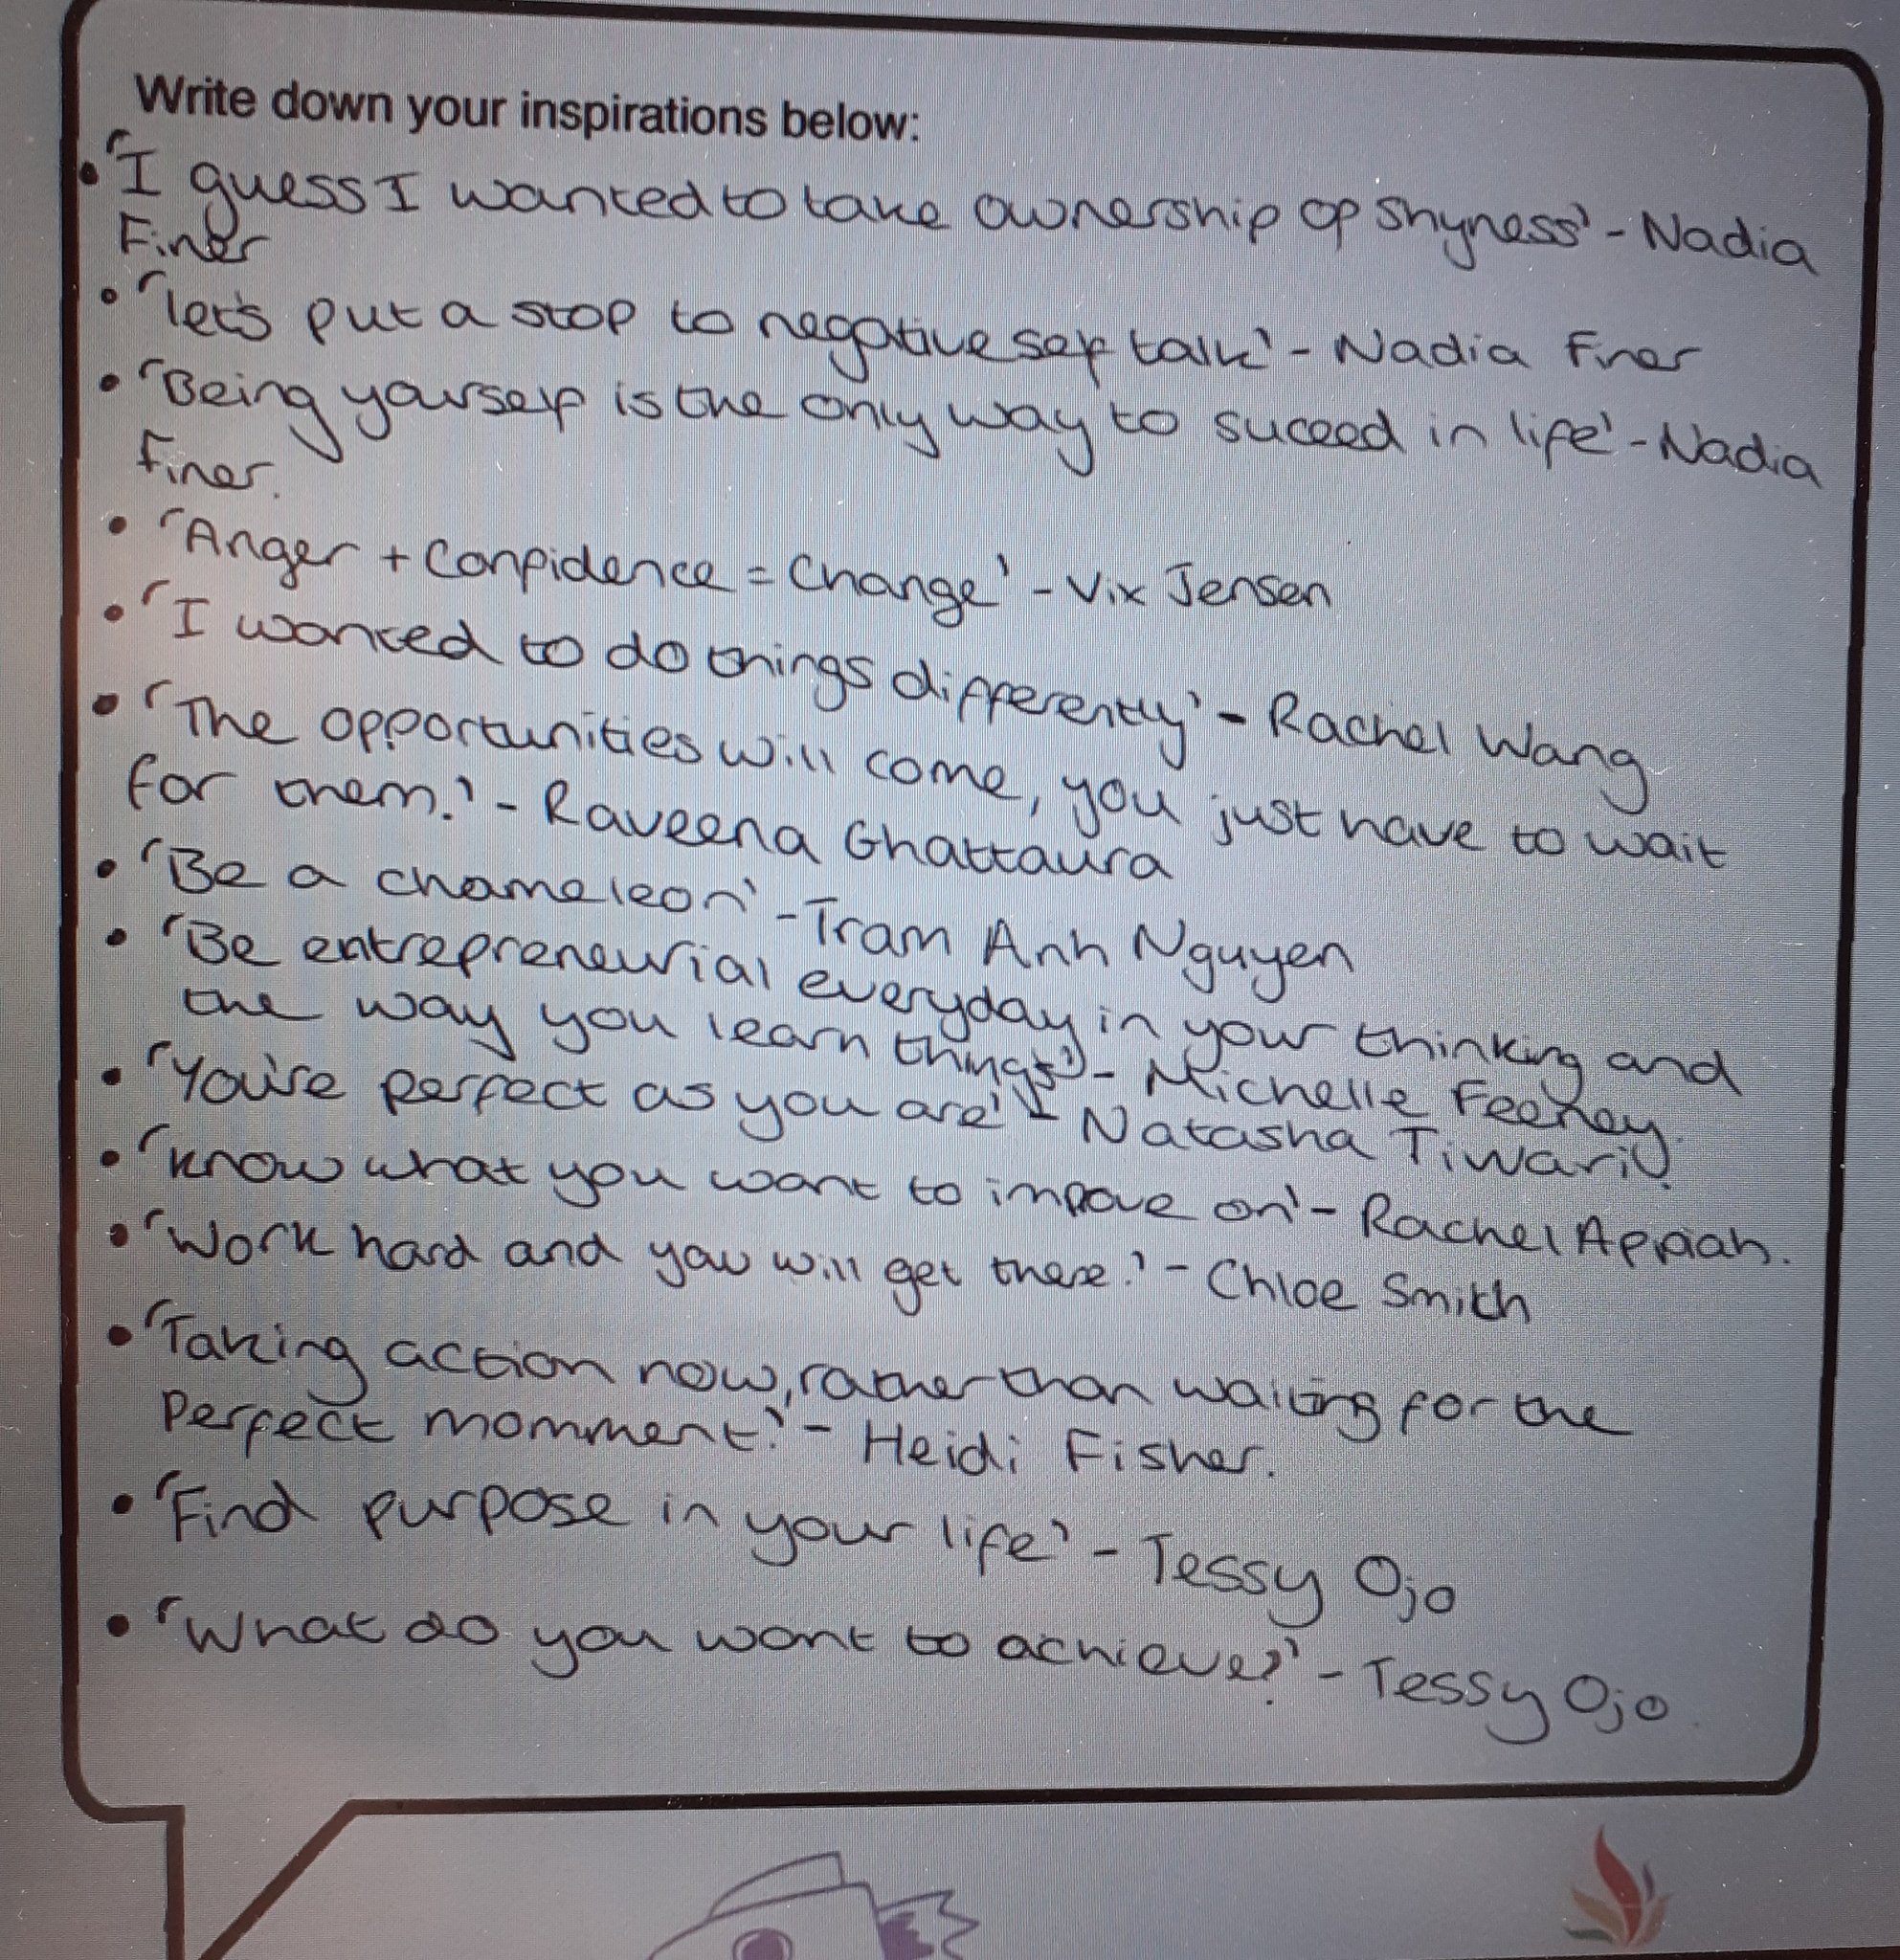 Write down your inspirations below:
• 'I guess I wanted to take ownership of shyness' - Nadia
Finer
• 'let's put a stop to negative self talk' - Nadia Finer
• 'Being yourself is the only way to suceed in life' - Nadia
Finer.
• 'Anger + Confidence = Change' - Vix Jensen
• 'I wanted to do things differently' - Rachel Wang
• 'The opportunities will come, you just have to wait
for them.' - Raveena Ghattaura
• 'Be a chameleon' - Tram Anh Nguyen
• 'Be entrepreneurial everyday in your thinking and
the way you learn things' - Michelle Feeney.
• 'You're perfect as you are' - Natasha Tiwari
• 'know what you want to impove on' - Rachel Appiah.
• 'Work hard and you will get there.' - Chloe Smith
• 'Taking action now, rather than waiting for the
perfect momment.' - Heidi Fisher.
• 'Find purpose in your life' - Tessy Ojo
• 'What do you want to achieve?' - Tessy Ojo.